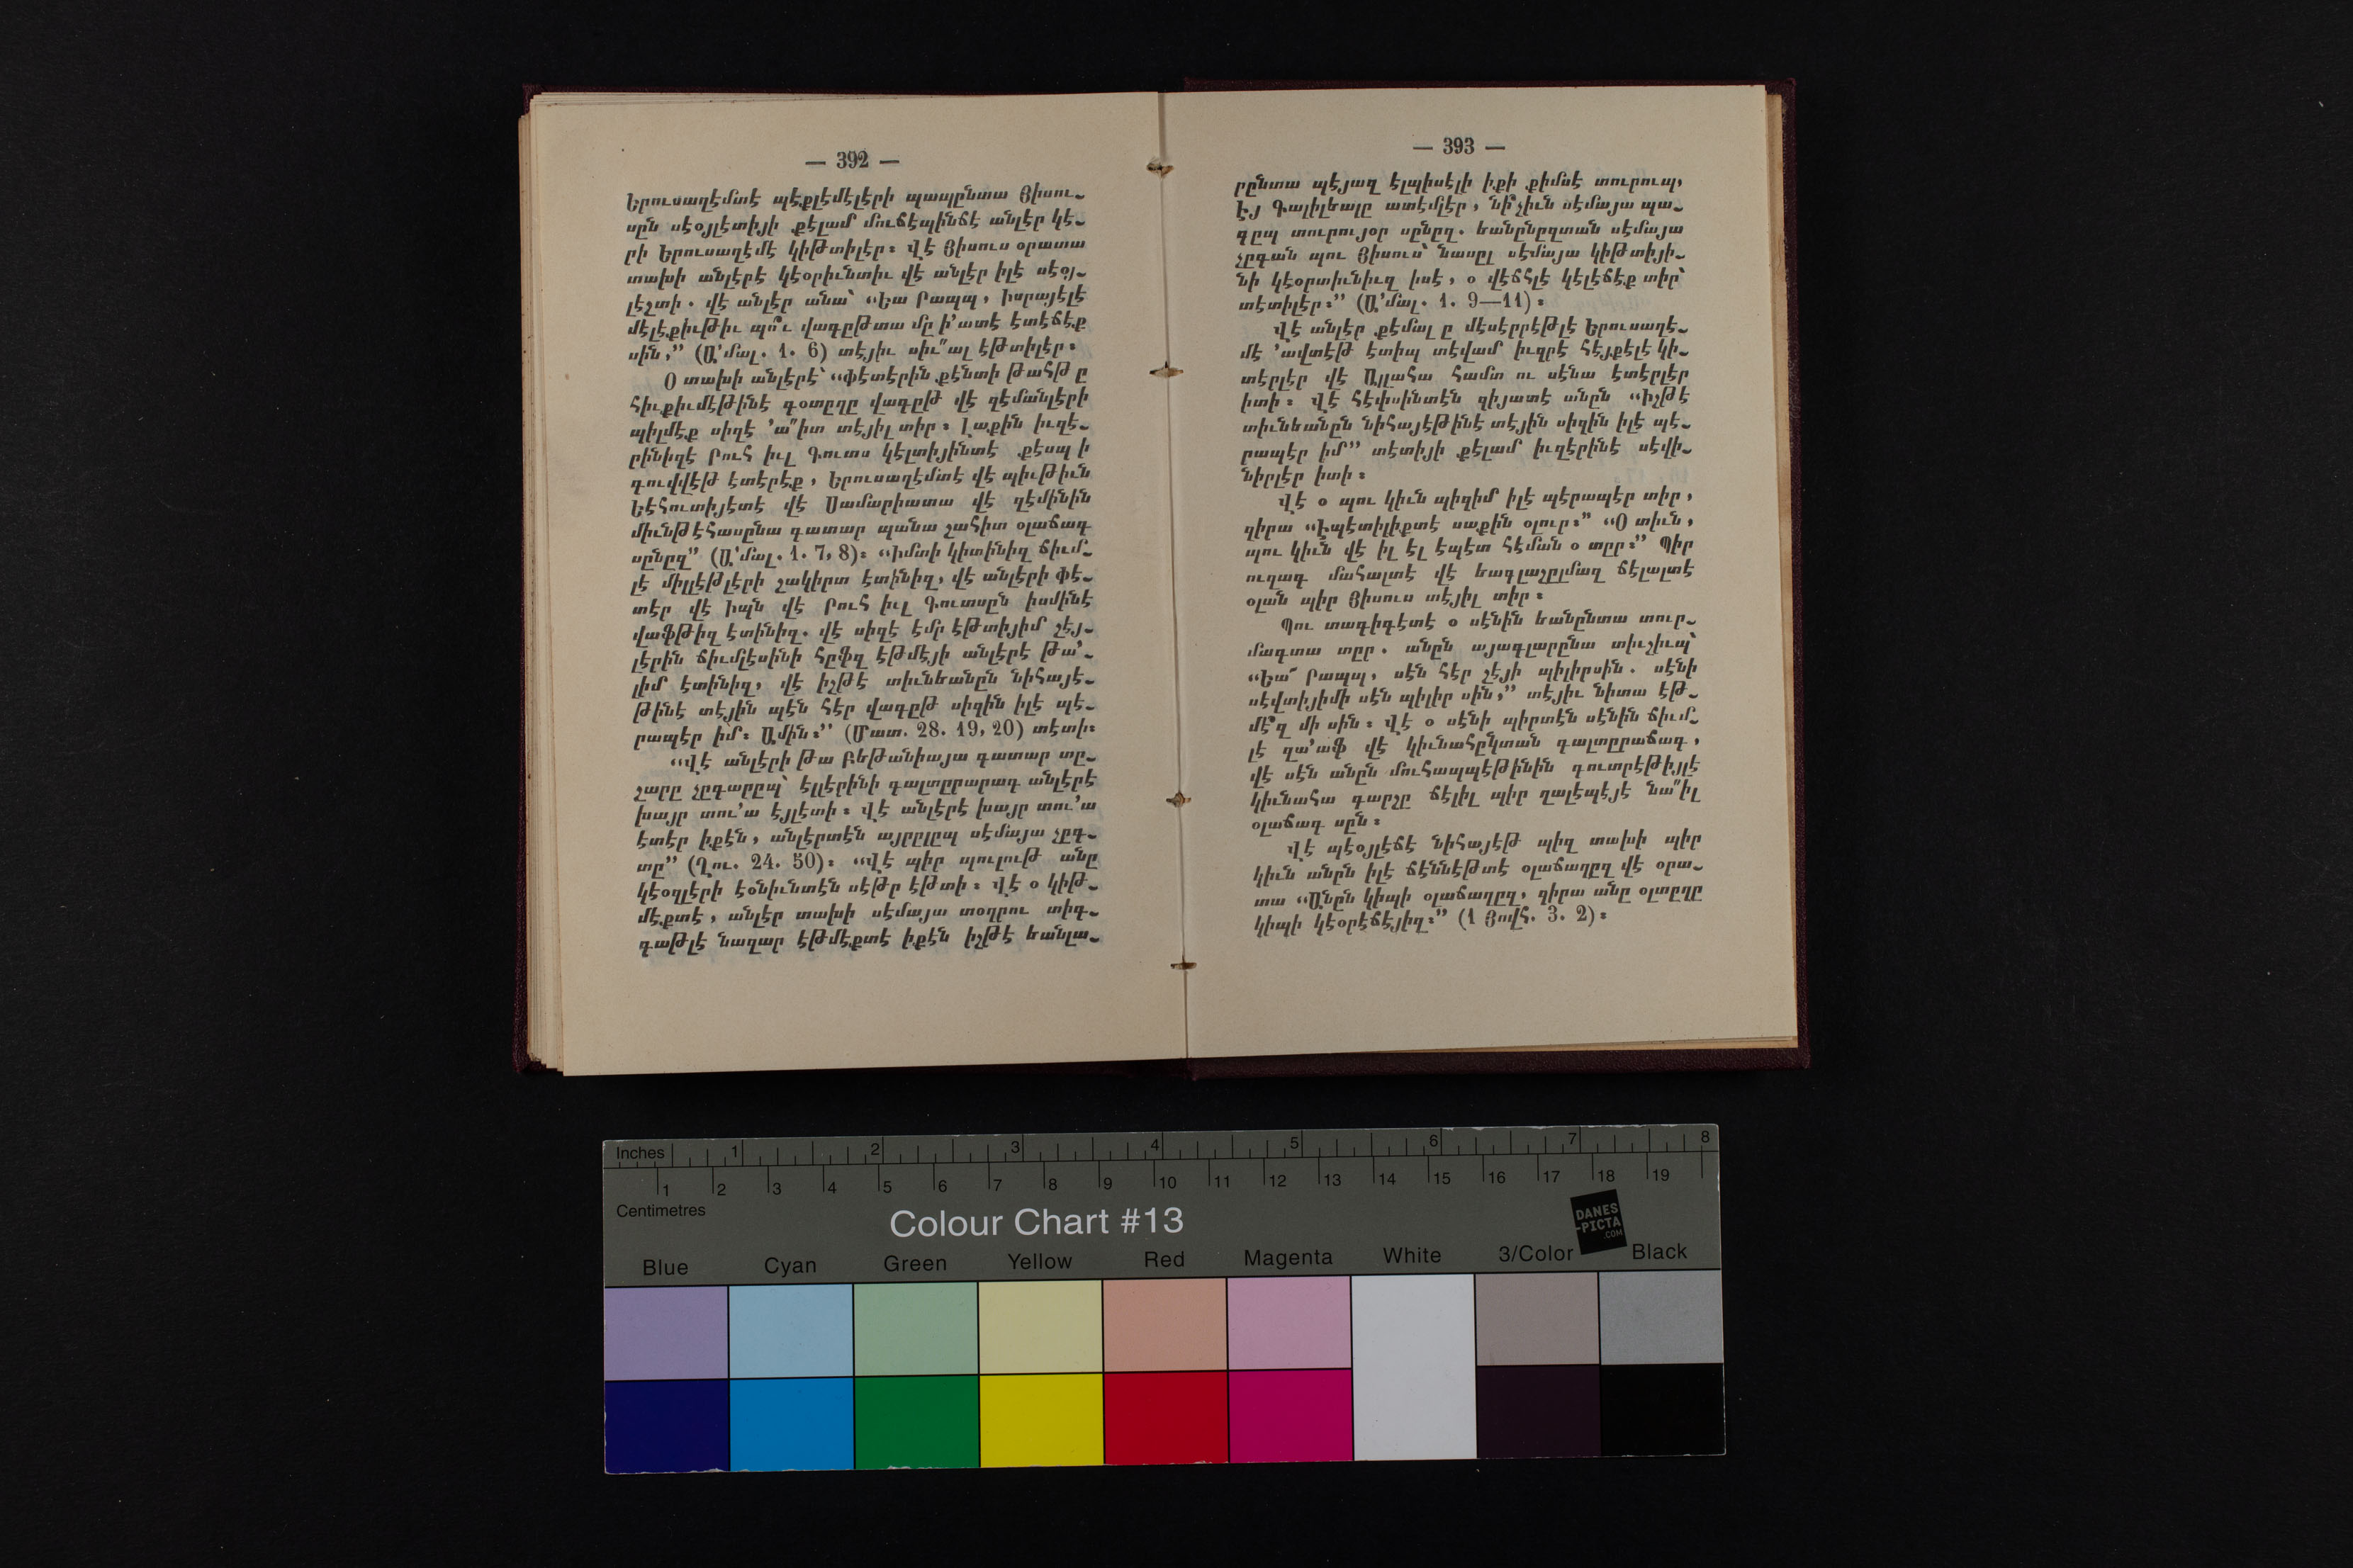 — 392 —
Երուսաղէմտէ պէքլէմէլէրի պապընտա Յիսու-
սըն սէօյլէտիյի քէլամ մուճէպինճէ անլէր կէ-
րի Երուսաղէմէ կիթտիլէր։ Վէ Յիսուս օրատա
տախի անլէրէ կէօրիւնտիւ վէ անլէր իլէ սէօյ-
լէշտի. վէ անլէր անա՝ “Եա Րապպ, Իսրայէլէ
մէլէքիւթիւ պո՞ւ վագըթտա մը ի՚ատէ էտէճէք
սին,” (Ա՚մալ. 1. 6) տէյիւ սիւ՞ալ էթտիլէր։
Օ տախի անլէրէ՝ “Փէտէրին քէնտի թահթ ը
հիւքիւմէթինէ գօտըղը վագըթ վէ զէմանլէրի
պիլմէք սիզէ ՚ա՞իտ տէյիլ տիր։ Լաքին իւզէ-
րինիզէ Րուհ իւլ Գուտս կէլտիյինտէ քէսպ ի
գուվվէթ էտէրէք, Երուսաղէմտէ վէ պիւթիւն
Եէհուտիյէտէ վէ Սամարիատա վէ զէմինին
միւնթէհասընա գատար պանա շահիտ օլաճագ
սընըզ” (Ա՚մալ. 1. 7, 8)։ “Իմտի կիտինիզ ճիւմ-
լէ միլլէթլէրի շակիրտ էտինիզ, վէ անլէրի Փէ-
տէր վէ Իպն վէ Րուհ իւլ Գուտսըն իսմինէ
վաֆթիզ էտինիզ. վէ սիզէ էմր էթտիյիմ շէյ-
լէրին ճիւմլէսինի հըֆզ էթմէյի անլէրէ թա՚-
լիմ էտինիզ, վէ իշթէ տիւնեանըն նիհայէ-
թինէ տէյին պէն հէր վագըթ սիզին իլէ պէ-
րապէր իմ։ Ամին։” (Մատ. 28. 19, 20) տէտի։
“Վէ անլէրի թա Բեթանիայա գատար տը-
շարը չըգարըպ՝ էլլէրինի գալտըրարագ անլէրէ
խայր տու՚ա էյլէտի։ Վէ անլէրէ խայր տու՚ա
էտէր իքէն, անլէրտէն այրըլըպ սէմայա չըգ-
տը” (Ղու. 24. 50)։ “Վէ պիր պուլութ անը
կէօզլէրի էօնիւնտէն սէթր էթտի։ Վէ օ կիթ-
մէքտէ, անլէր տախի սէմայա տօղրու տիգ-
գաթլէ նազար էթմէքտէ իքէն իշթէ եանլա-
— 393 —
րընտա պէյազ էլպիսէլի իքի քիմսէ տուրուպ,
Էյ Գալիլեալը ատէմլէր, նի՞չիւն սէմայա պա-
գըպ տուրույօր սընըզ. եանընըզտան սէմայա
չըգան պու Յիսուս՝ նասըլ սէմայա կիթտիյի-
նի կէօրտիւնիւզ իսէ, օ վէճհլէ կէլէճէք տիր՝
տէտիլէր։” (Ա՚մալ. 1. 9—11)։
Վէ անլէր քէմալ ը մէսէրրէթլէ Երուսաղէ-
մէ ՚ավտէթ էտիպ տէվամ իւզրէ հէյքէլէ կի-
տէրլէր վէ Ալլահա համտ ու սէնա էտէրլէր
իտի։ Վէ հէփսինտէն զիյատէ անըն “Իշթէ
տիւնեանըն նիհայէթինէ տէյին սիզին իլէ պէ-
րապէր իմ” տէտիյի քէլամ իւզէրինէ սէվի-
նիրլէր իտի։
Վէ օ պու կիւն պիզիմ իլէ պէրապէր տիր,
զիրա “Էպէտիլիքտէ սաքին օլուր։” “Օ տիւն,
պու կիւն վէ իլ էլ էպէտ հէման օ տըր։” Պիր
ուզագ մահալտէ վէ եագլաշըլմազ ճէլալտէ
օլան պիր Յիսուս տէյիլ տիր։
Պու տագիգէտէ օ սէնին եանընտա տուր-
մագտա տըր. անըն այագլարընա տիւշիւպ՝
“Եա՜ Րապպ, սէն հէր շէյի պիլիրսին. սէնի
սէվտիյիմի սէն պիլիր սին,” տէյիւ նիտա էթ-
մէ՞զ մի սին։ Վէ օ սէնի պիրտէն սէնին ճիւմ-
լէ զա՚աֆ վէ կիւնահըկտան գալտըրաճագ,
վէ սէն անըն մուհապպէթինին գուտրէթիյլէ
կիւնահա գարշը ճէլիլ պիր ղալէպէյէ նա՞իլ
օլաճագ սըն։
Վէ պէօյլէճէ նիհայէթ պիզ տախի պիր
կիւն անըն իլէ ճէննէթտէ օլաճաղըզ վէ օրա-
տա “Անըն կիպի օլաճաղըզ, զիրա անը օլտըղը
կիպի կէօրէճէյիզ։” (1 Յովհ. 3. 2)։
Inches 1 2 3 4 5 6 7 8
1 2 3 4 5 6 7 8 9 10 11 12 13 14 15 16 17 18 19
Centimetres
Colour Chart #13
DANES
-PICTA
.COM
Blue Cyan Green Yellow Red Magenta White 3/Color Black